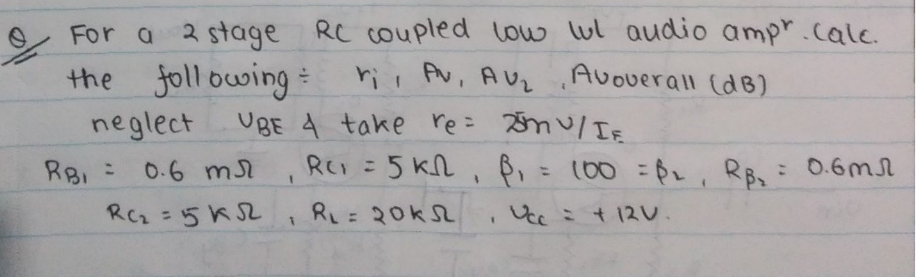 Q For a 2 stage RC coupled low lvl audio ampr. Calc.
the following ÷ ri, Av, Av2, Avoverall (dB)
neglect VBE & take re = 25mV/IE
RB1 = 0.6 mΩ, RC1 = 5 KΩ, β1 = 100 = β2, RB2 = 0.6mΩ
RC2 = 5 KΩ, RL = 20KΩ, Vcc = +12V.